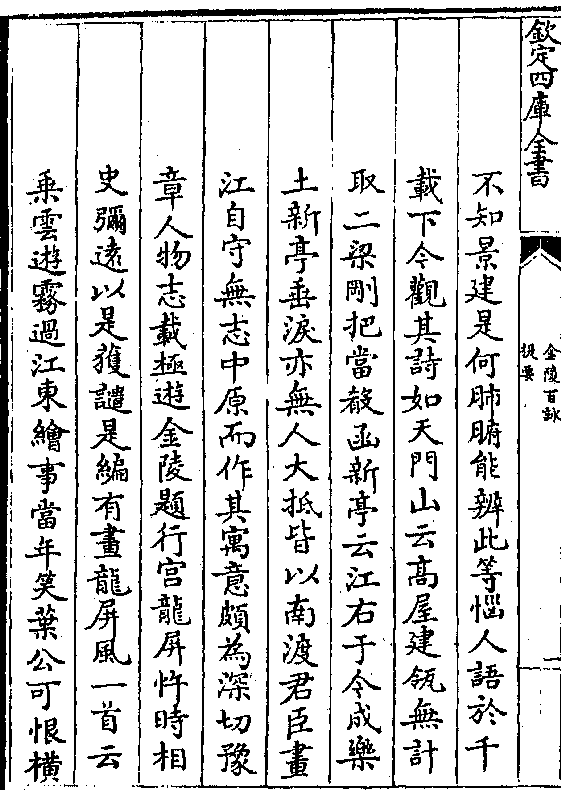 欽定四庫全書
金陵百詠
提要
不知景建是何肺腑能辨此等惱人語於千
載下今觀其詩如天門山云高屋建瓴無計
取二梁剛把當殽函新亭云江右于今成樂
土新亭垂淚亦無人大抵皆以南渡君臣畫
江自守無志中原而作其寓意頗為深切豫
章人物志載極遊金陵題行宫龍屏忤時相
史彌遠以是獲譴是編有畫龍屏風一首云
乗雲遊霧過江東繪事當年笑葉公可恨橫